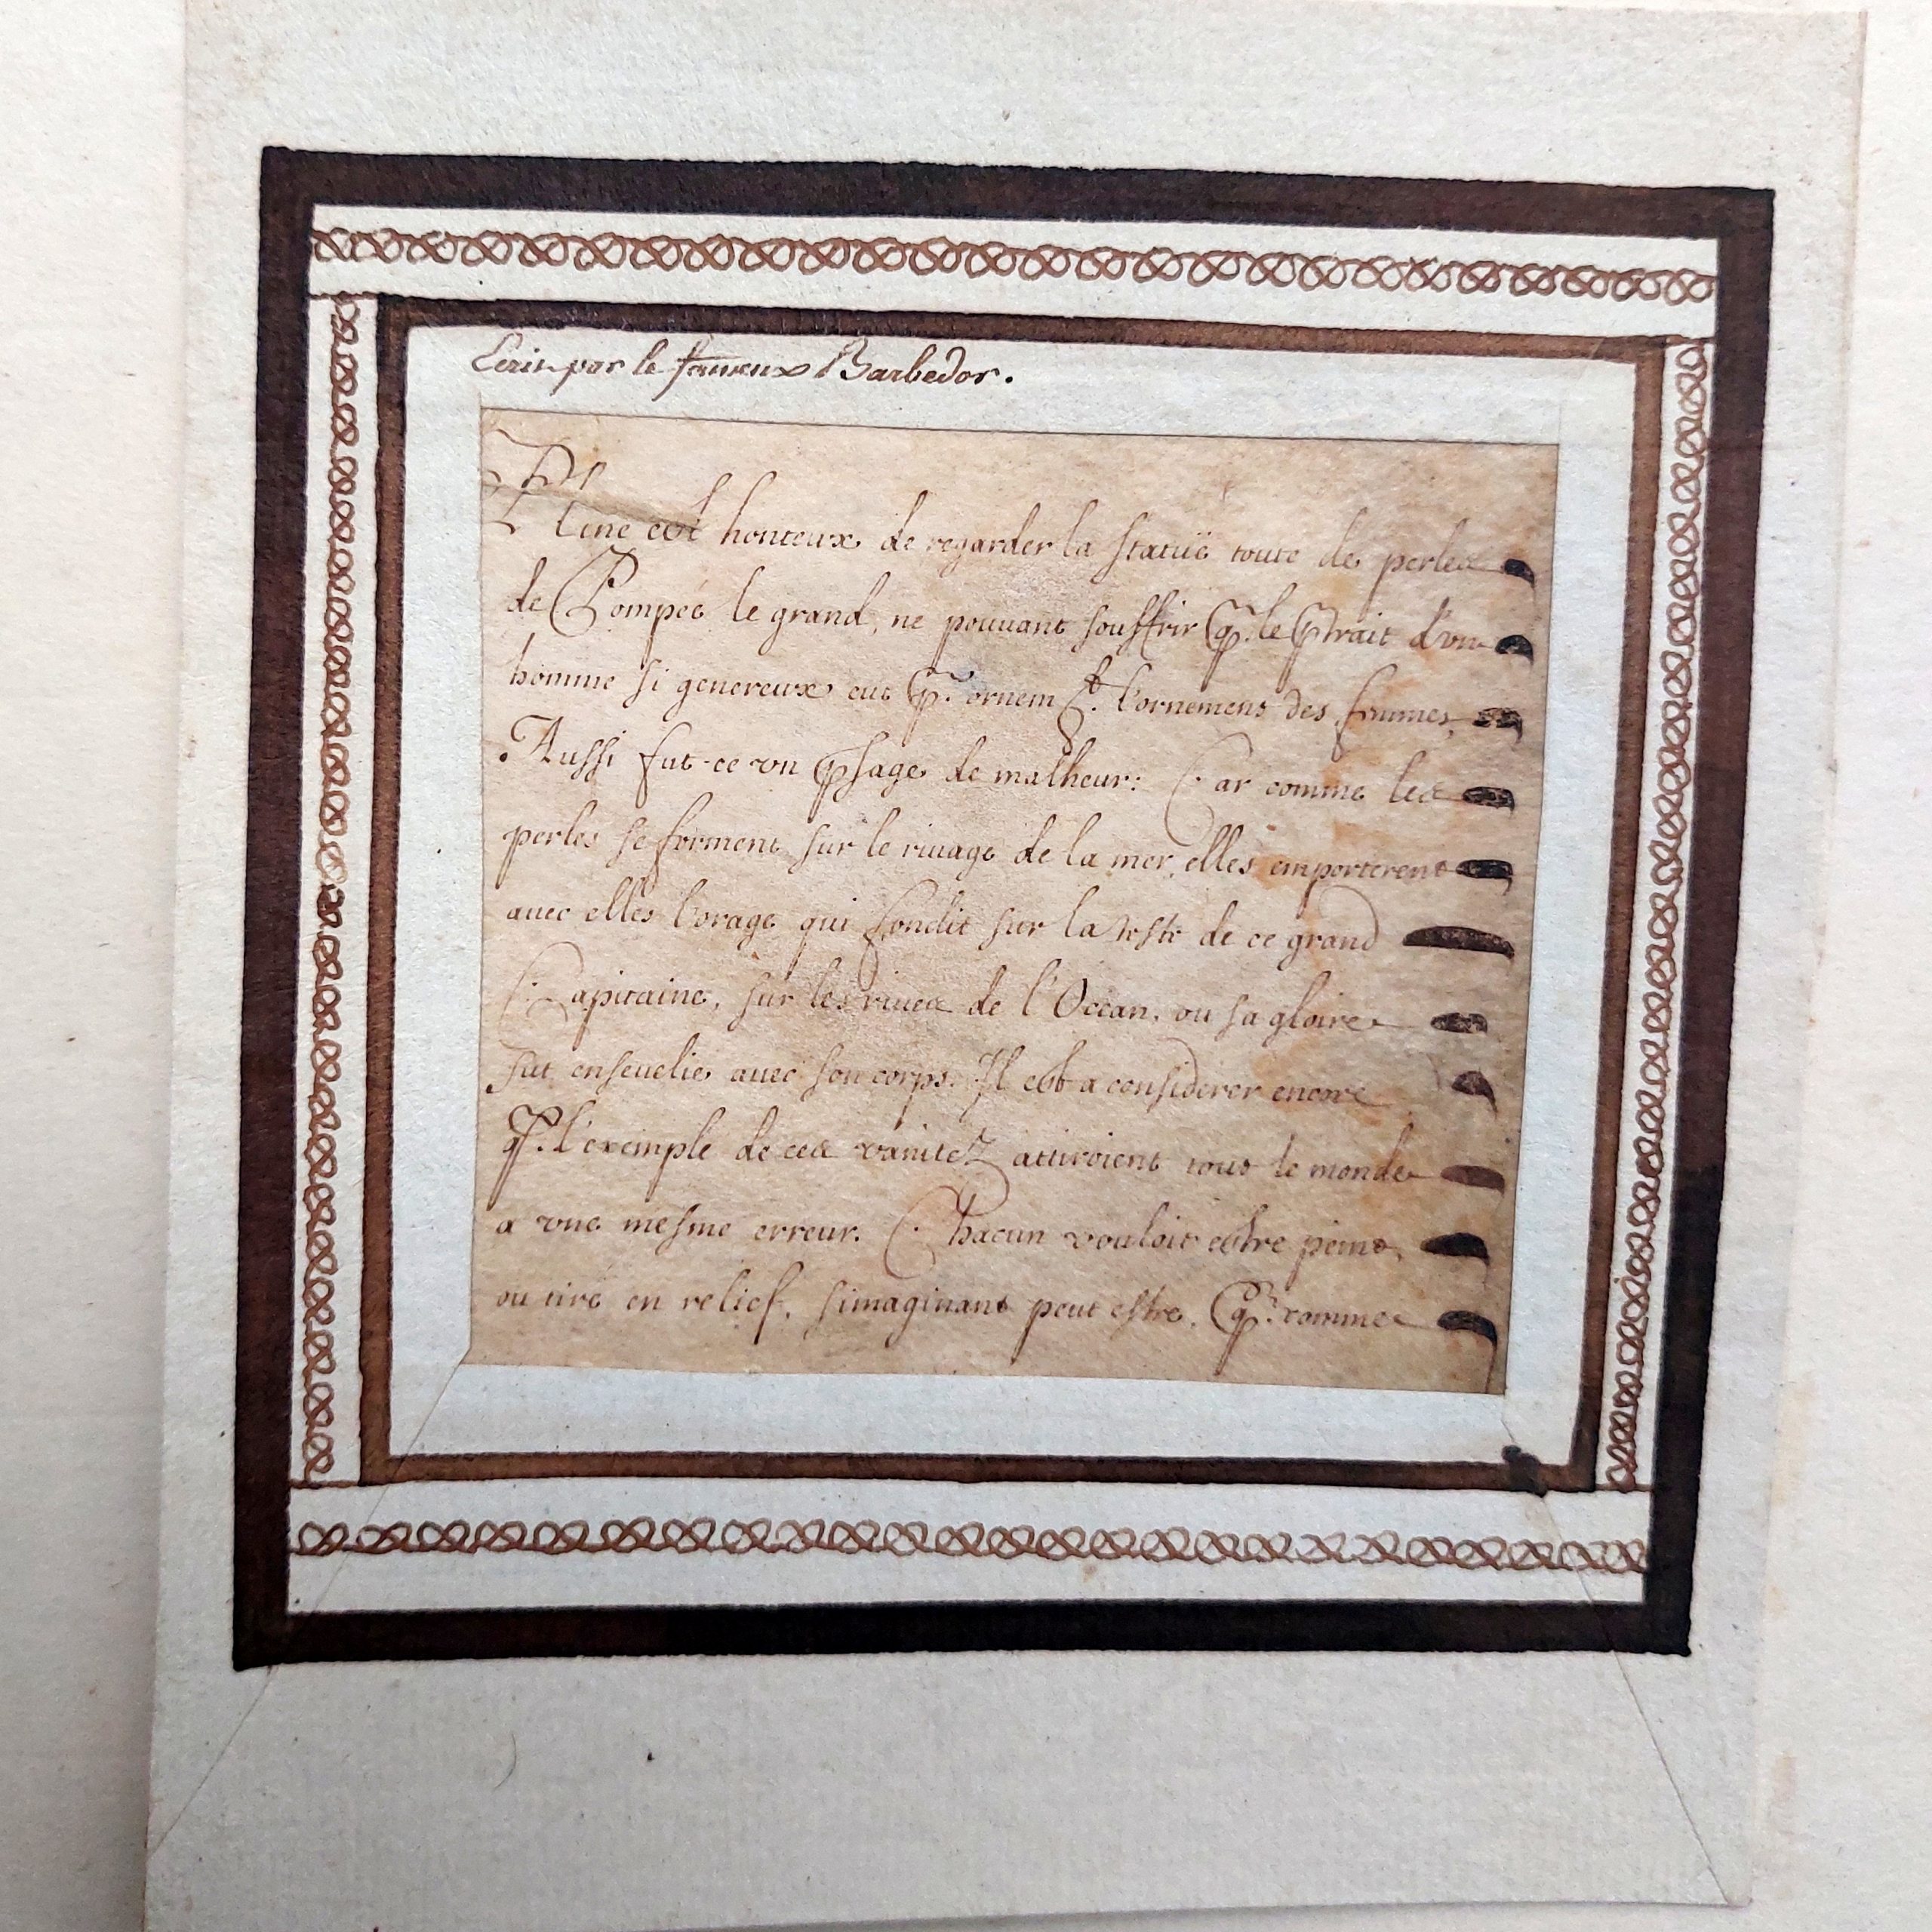 Ecrit par le fameux Barbedor.
Pline est honteux de regarder la statuë toute de perles
de Pompée le grand, ne pouuant souffrir q. le ptrait d'vn
homme si genereux eut p. ornem.t l'ornement des femmes,
Aussi fut-ce vn psage de malheur: Car comme les
perles se forment sur le riuage de la mer, elles emporterent
auec elles l'orage qui fondit sur la teste de ce grand
Capitaine, sur les riues de l'Ocean, ou sa gloire
fut enseuelie auec son corps. Il est a considerer encore
q. l'exemple de ces vanitez attiroient tout le monde
a vne mesme erreur. Chacun vouloit estre peint,
ou tiré en relief, simaginant peut estre, q. comme